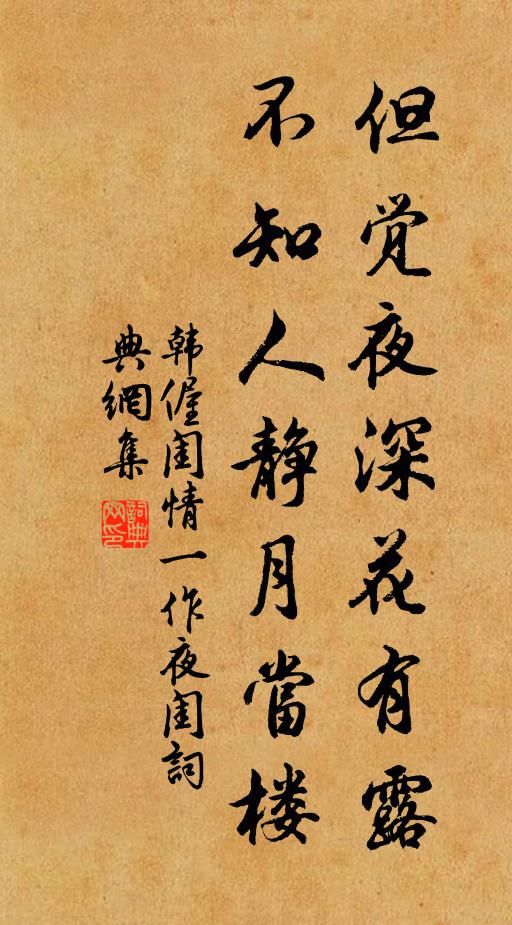 但觉夜深花有露
不知人静月當楼
韩偓闺情一作夜闺詞
典網集
詞典
网印